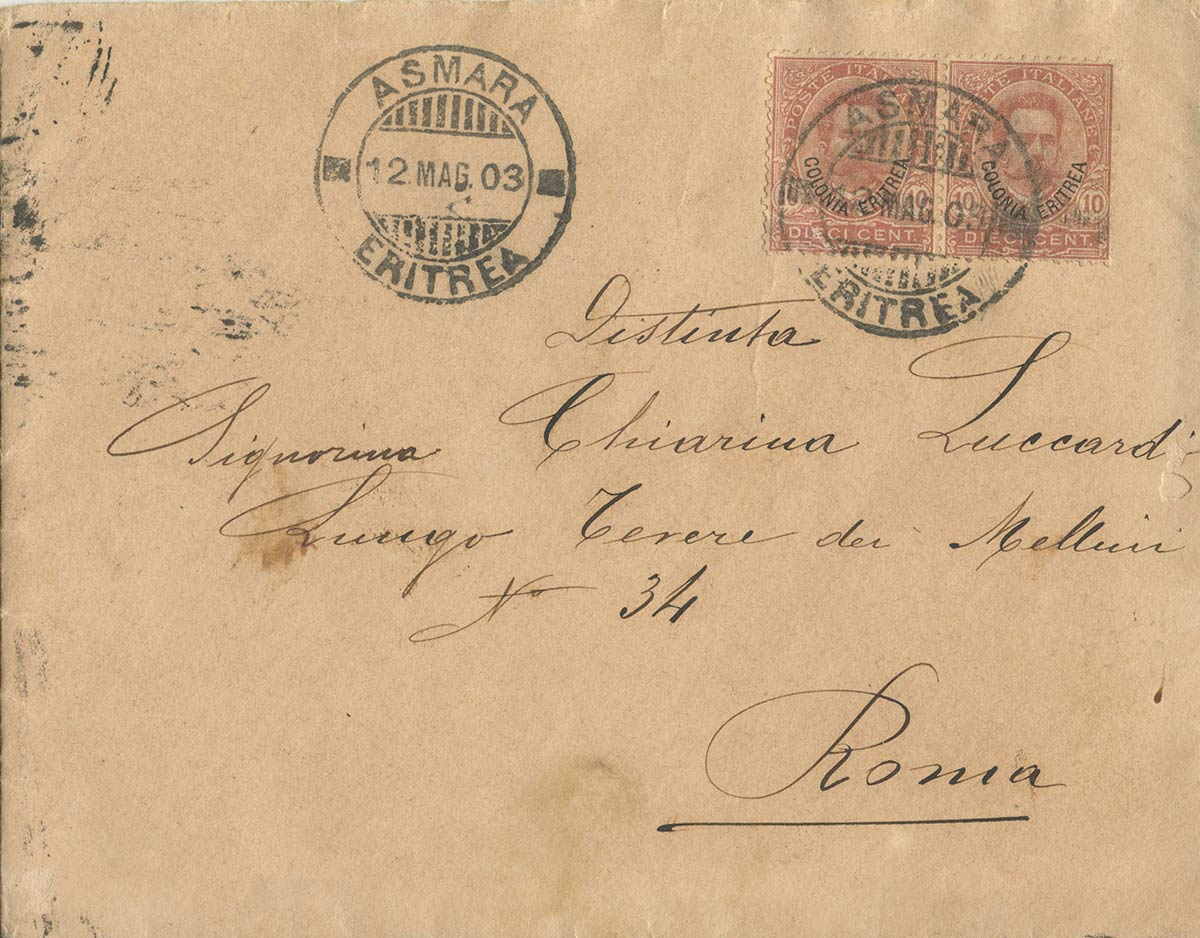 ASMARA
12 MAG. 03
ERITREA
POSTE ITALIANE
COLONIA ERITREA
10 10
DIECI CENT.
POSTE ITALIANE
COLONIA ERITREA
10 10
DIECI CENT.
ASMARA
12 MAG. 03
ERITREA
Distinta
Signorina Chiarina Luccardi
Lungo Tevere dei Mellini
No 34
Roma